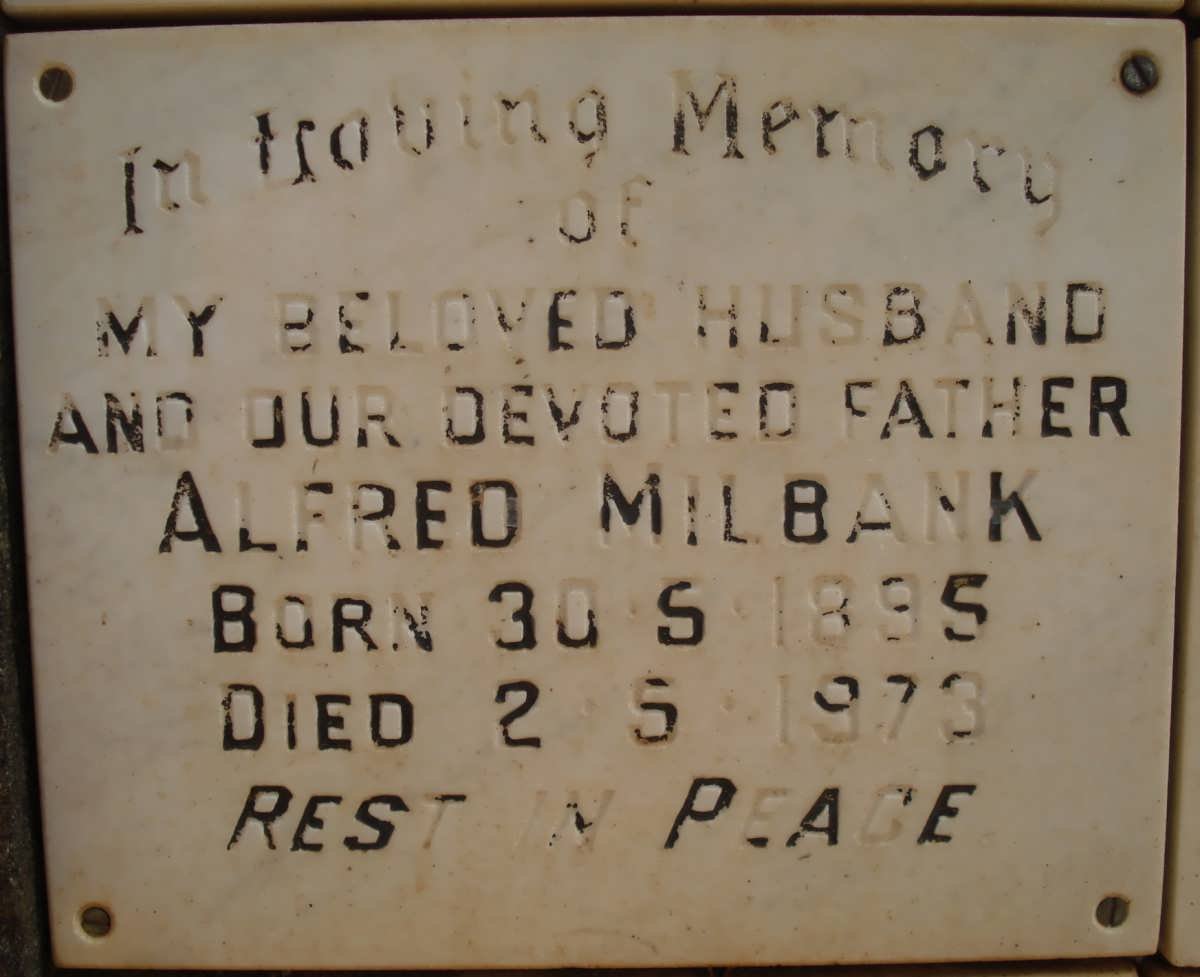 In Loving Memory
of
MY BELOVED HUSBAND
AND OUR DEVOTED FATHER
ALFRED MILBANK
BORN 30·5·1895
DIED 2·5·1973
REST IN PEACE